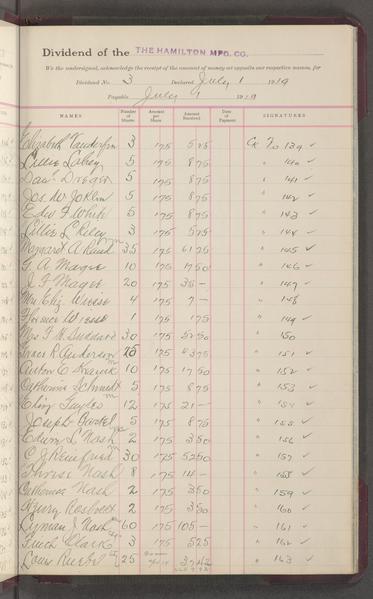 Dividend of the THE HAMILTON MFG. CO.
We the undersigned, acknowledge the receipt of the amount of money set opposite our respective names, for
Dividend No. 3 Declared July 1 1919
Payable July 1 1919
NAMES Number of Shares Amount per Share Amount Received Date of Payment SIGNATURES
Elizabeth 3 175 525 Ck No 139 ✓
5 175 875 " 140 ✓
Dan'l 5 175 875 " 141 ✓
Jos. W. 5 175 875 " 142 ✓
Edw F White 5 175 875 " 143 ✓
Lillie L Riley 3 175 525 " 144 ✓
Margaret A 35 175 6125 " 145 ✓
G. A Magee 10 175 1750 " 146 ✓
F Magee 20 175 35 — " 147 ✓
Mrs Eliz Wiese 4 175 7 — " 148
Florence Wiese 1 175 175 " 149 ✓
Mrs F. W. Suddard 30 175 5250 " 150
Grace R. Anderson 25 175 4375 " 151 ✓
Anton E 10 175 1750 " 152 ✓
Catherine Schmidt 5 175 875 " 153 ✓
12 175 21 — " 154 ✓
Joseph 5 175 875 " 155 ✓
Edwin L Nash 2 175 350 " 156 ✓
C J 30 175 5250 " 157 ✓
Nash 8 175 14 — " 158 ✓
Catherine Nash 2 175 350 " 159 ✓
Henry 2 175 350 " 160 ✓
Lyman J Nash 60 175 105 — " 161 ✓
Finch Clark 3 175 525 " 162 ✓
Louis 25 " 163 ✓